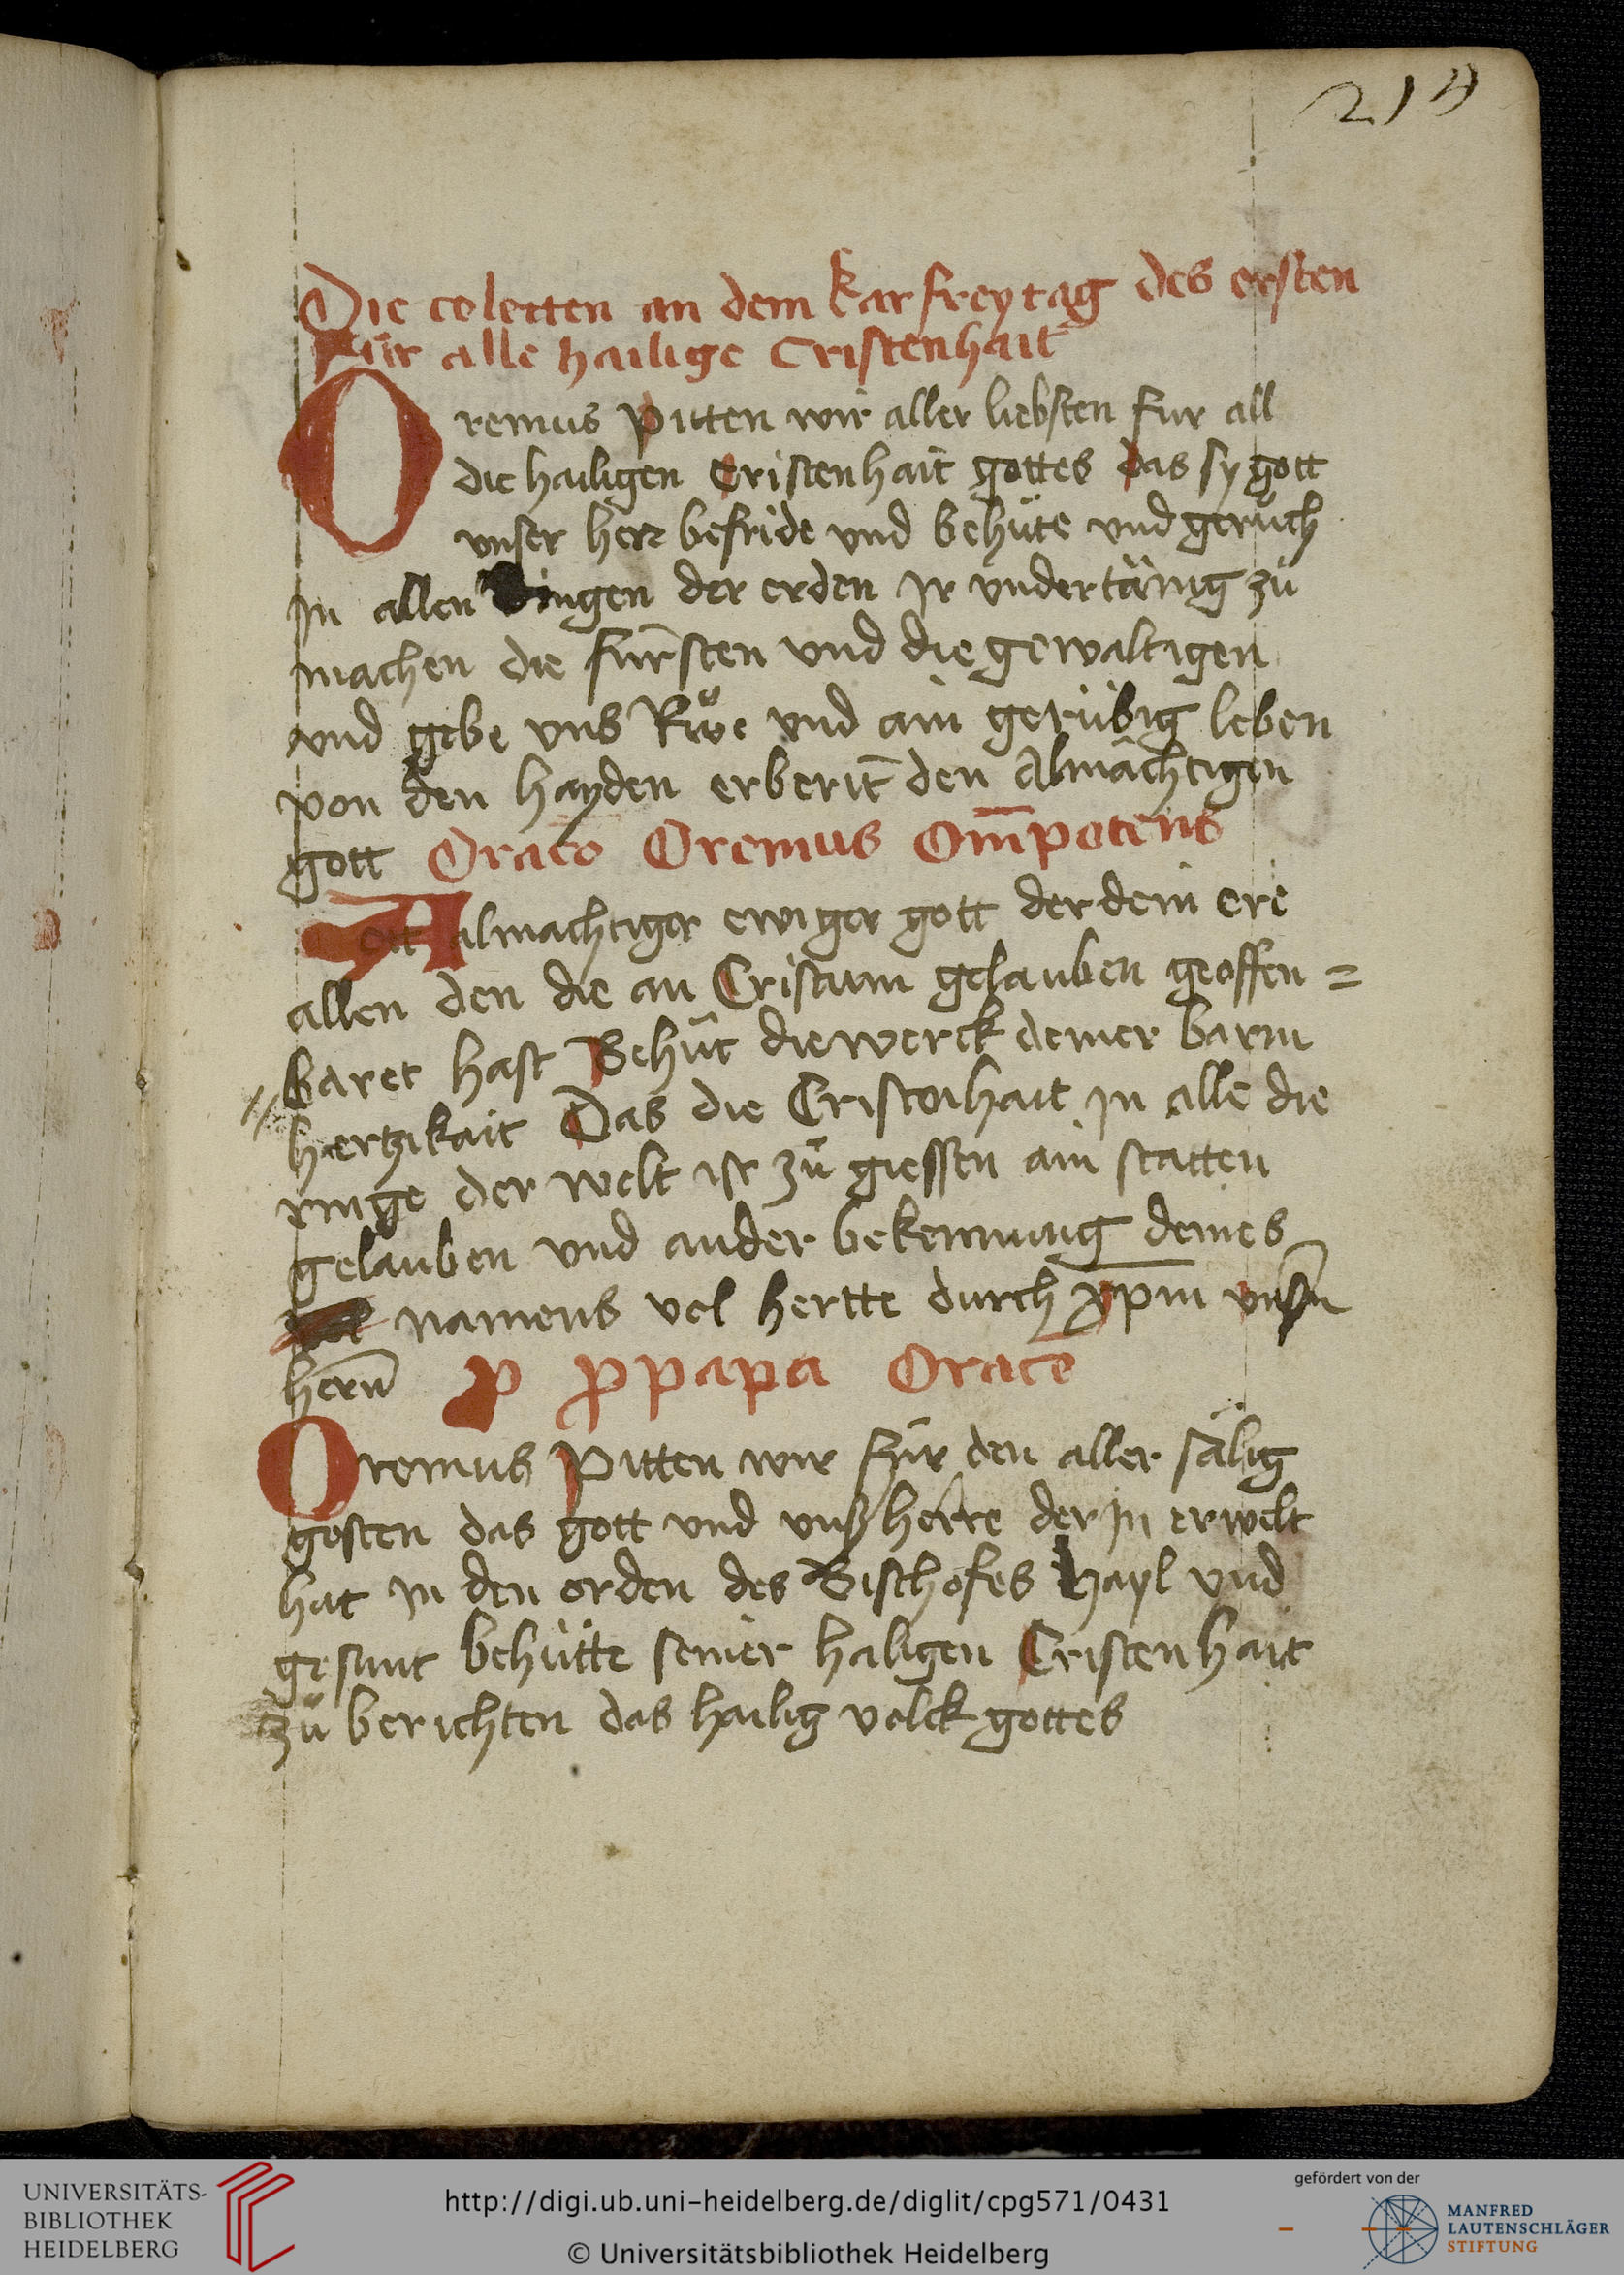 214
Die coletten an dem karfreytag des ersten
Für alle hailige Cristenhait
Oremus Pitten wir aller liebsten fur all
die hailigen Cristenhait gottes das sy gott
vnser herr befride vnd behüte vnd gerůch
in allen dingen der erden ir vndertänig zů
machen die fürsten vnd die gewaltigen
vnd gebe vns Růe vnd ain gerübig leben
von den hayden erberit̄ den Almächtigen
gott Oraco̅ Oremus Om̅potens
Almachtiger ewiger gott der dein ere
allen den die an Cristum gelauben geoffen =
baret hast Behüt die werck deiner barm
hertzikait Das die Cristenhait in alle die
ringe der welt ist zů giessen ain statten
gelauben vnd ander bekennung deines
namens vel hertte durch xp̅m vnsn̅
hern̅ P ꝓ papa Orac̅e
Oremus Pitten wir für den aller sälig
gosten das gott vnd vnß herre der in erwelt
hat in den orden des Bischofes hayl vnd
gesunt behütte seiner haligen Cristenhait
zů berichten das hailig volck gottes
UNIVERSITÄTS-
BIBLIOTHEK
HEIDELBERG
http://digi.ub.uni-heidelberg.de/diglit/cpg571/0431
© Universitätsbibliothek Heidelberg
gefördert von der
MANFRED
LAUTENSCHLÄGER
STIFTUNG